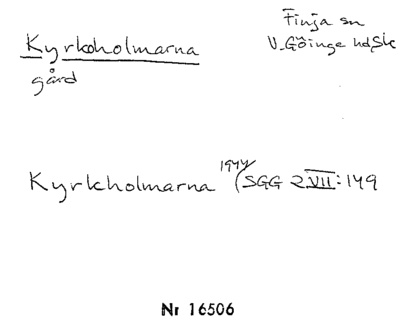 Kyrkoholmarna
gård
Finja sn
V. Göinge hd, Sk
Kyrkholmarna 1944 (SGG 2 VII: 149
Nr 16506